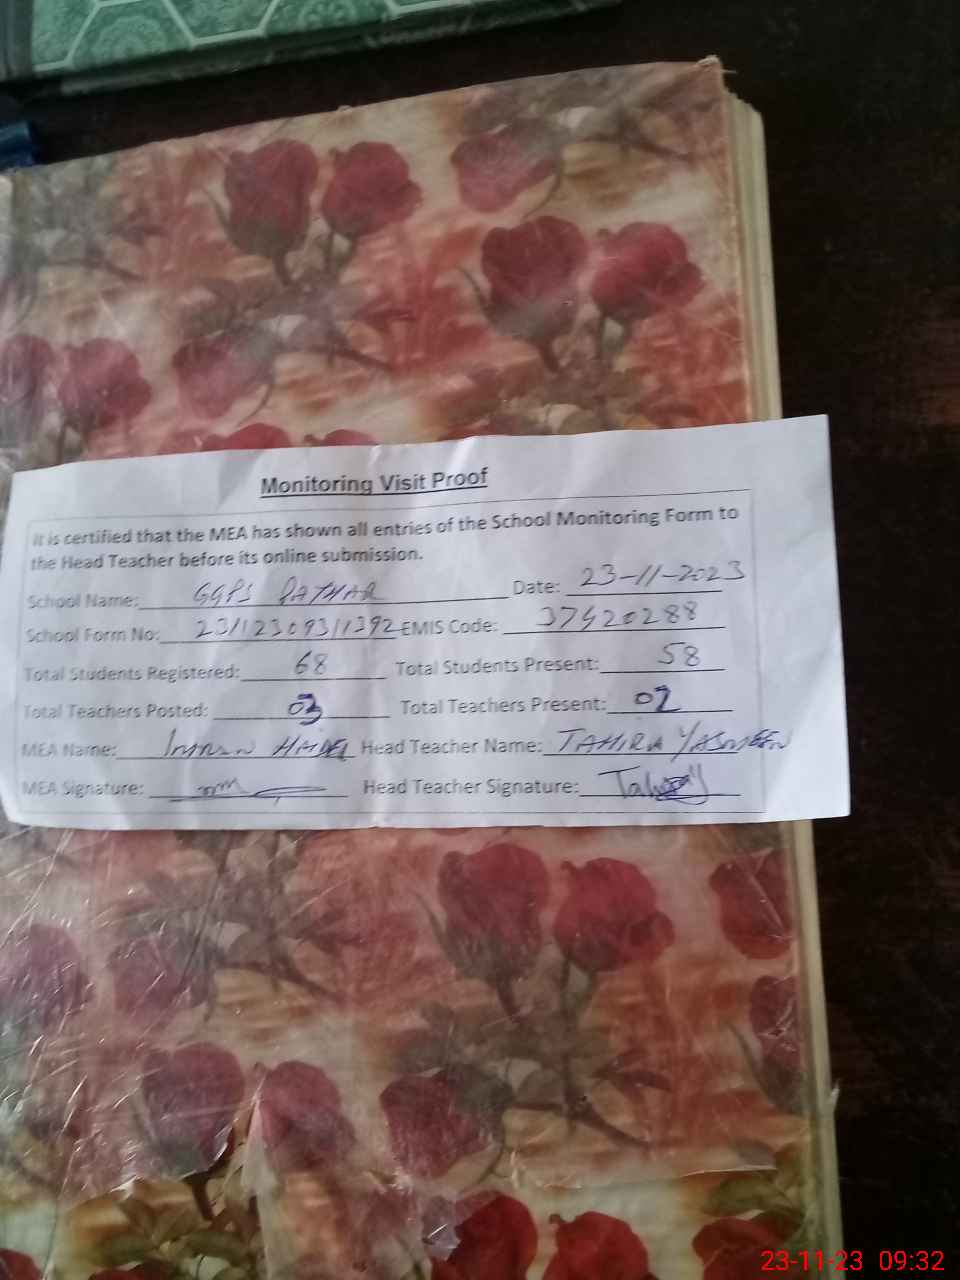 Monitoring Visit Proof
It is certified that the MEA has shown all entries of the School Monitoring Form to
the Head Teacher before its online submission.
School Name: GGPS PATHAR Date: 23-11-2023
School Form No: 23112309311392 EMIS Code: 37420288
Total Students Registered: 68 Total Students Present: 58
Total Teachers Posted: 03 Total Teachers Present: 02
MEA Name: Imran HAIDER Head Teacher Name: TAHIRA YASMEEN
MEA Signature: Head Teacher Signature:
23-11-23 09:32